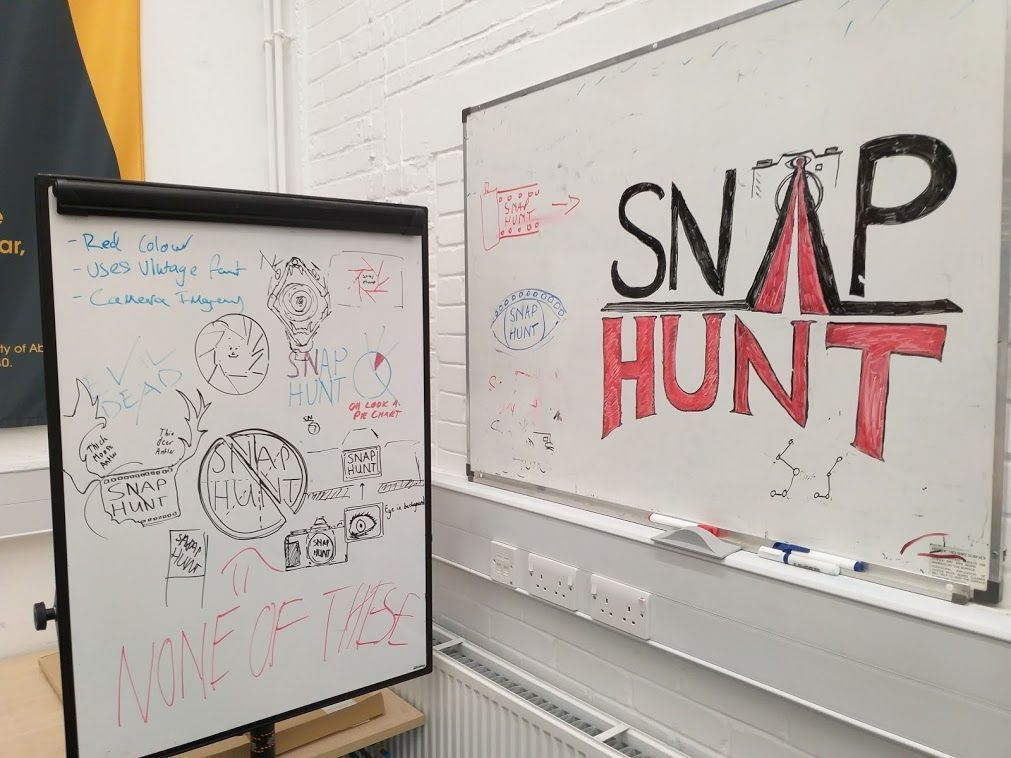 ar,
ty of Ab
0.
- Red Colour
- Uses Vintage font
- Camera Imagery
EVIL
DEAD
SNAP
HUNT
OH LOOK A
PIE CHART
Thick
Moose
Antler
Thin
Deer
Antler
SNAP
HUNT
SNAP
HUNT
SNAP
HUNT
Eye in background
SNAP
HUNT
SNAP
HUNT
NONE OF THESE
SNAP
HUNT
SNAP
HUNT
SNAP
HUNT